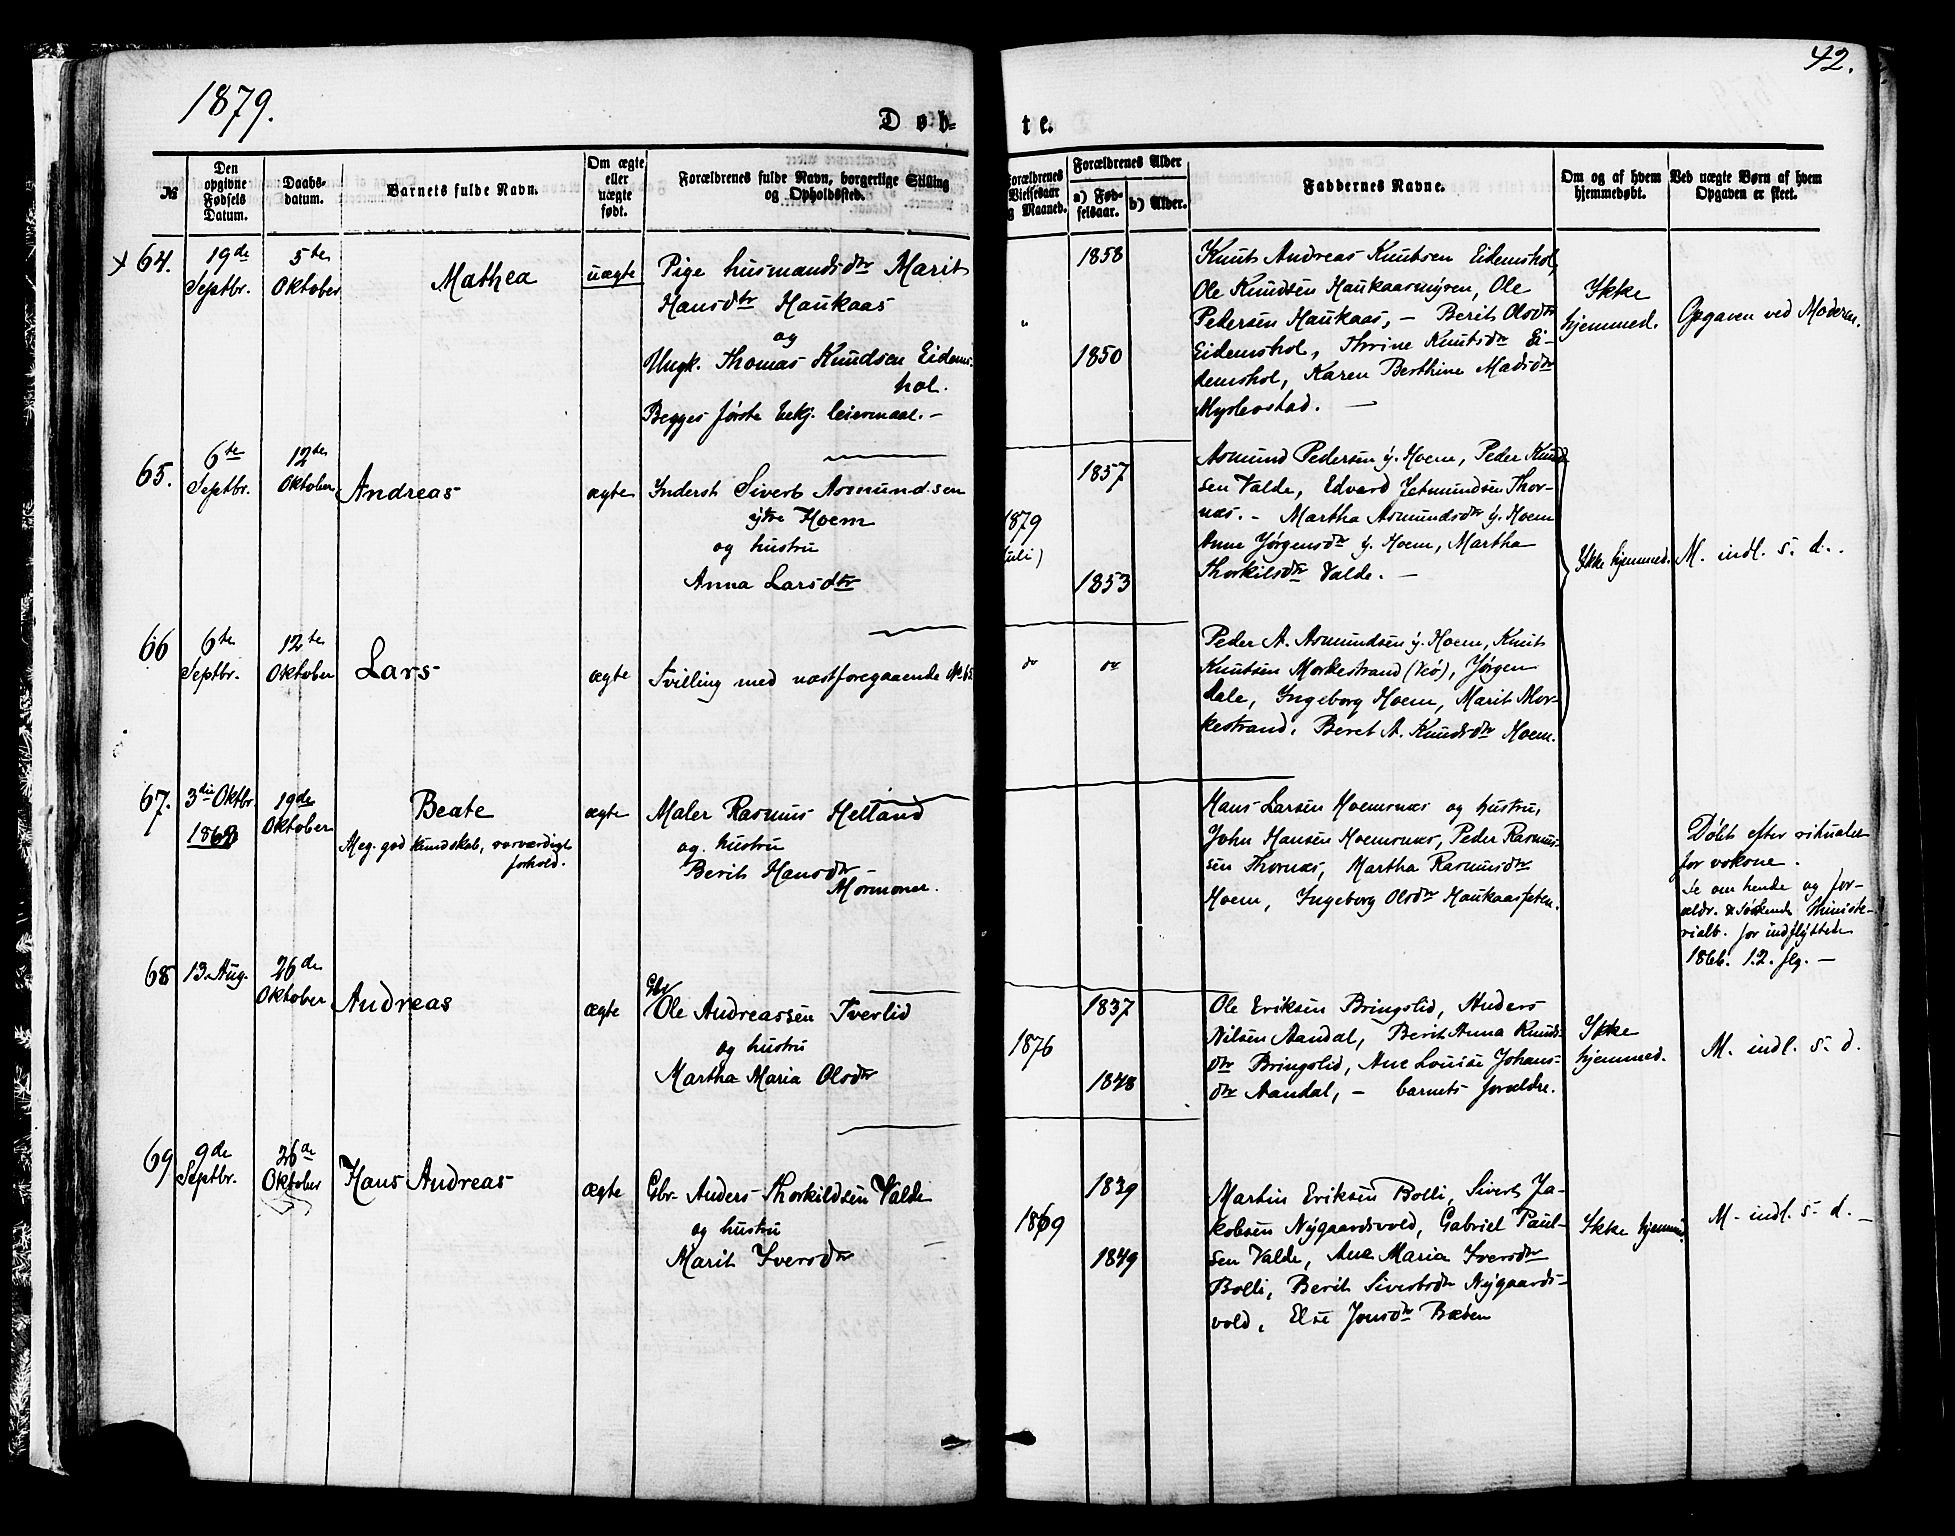 1879.
42.
Døb-
te.
№
Den opgivne Fødsels Datum.
Daabs-datum.
Barnets fulde Navn.
Om ægte eller uægte født.
Forældrenes fulde Navn, borgerlige Stilling og Opholdssted.
Forældrenes Vielsesaar og Maaned.
Forældrenes Alder
a) Fød-selsaar.
b) Alder.
Faddernes Navne.
Om og af hvem hjemmedøbt.
Ved uægte Børn af hvem Opgaven er skeet.
64.
19de Septbr.
5te Oktober
Mathea
uægte
Pige husmandsdtr Marit
Hansdtr Haukaas
og
Ungk. Thomas Knudsen Eidems-
hol.
Begges første bekj. leiermaal. -
"
1858
1850
Knut Andreas Knutsen Eidemshol,
Ole Knudsen Haukaasmyren, Ole
Pedersen Haukaas, - Berit Olsdtr
Eidemshol, Thrine Knutsdtr Ei-
demshol, Karen Berthine Madsdtr
Myrlevstad. -
Ikke
hjemmed.
Opgaven ved Moderen.
65.
6te Septbr.
12te Oktober
Andreas
ægte
Inderst Sivert Asmundsen
ytre Hoem
og hustru
Anna Larsdtr
1879
(Juli)
1857
1853
Asmund Pedersen y. Hoem, Peder Knud-
sen Valde, Edvard Jetmundsen Thor-
næs. - Martha Asmundsdtr y. Hoem
Anne Jørgensdtr y. Hoem, Martha
Thorkilsdtr Valde. -
Ikke hjemmed.
M. indl. s. d..
66
6te Septbr.
12te Oktober
Lars
ægte
Tvilling med næstforegaaende No 65
do
do
Peder A. Asmundsen y. Hoem, Knut
Knutsen Morkestrand (Veø), Jørgen
Dale, Ingeborg Hoem, Marit Mor-
kestrand, Beret A. Knudsdtr Hoem.
67.
3die Oktbr. 1860
19de Oktober
Beate
Meg. god kundskab, værdigt
forhold.
ægte
Maler Rasmus Helland
og hustru
Berit Hansdtr -
Mormoner.
Hans Larsen Hoemsnæs og hustru,
John Hansen Hoemsnæs, Peder Rasmus-
sen Thornæs, Martha Rasmusdtr
Hoem, Ingeborg Olsdtr Haukaasjeten.
Døbt efter ritualet
for voksne.
Se om hende og for-
ældr. & søskende Ministe-
rialb. for indflyttede
1866. 1.2. flg. -
68
13 Aug.
26de Oktober
Andreas
ægte
Gbr
Ole Andreassen Tverlid
og hustru
Martha Maria Olsdtr
1876
1837
1848
Ole Eriksen Bringslid, Anders
Nilsen Aandal, Berit Anna Knuds-
dtr Bringslid, Ane Louise Johans-
dtr Aandal, - barnets forældre.
Ikke
hjemmed.
M. indl. s. d.
69
9de Septbr.
26de Oktober
Hans Andreas
ægte
Gbr. Anders Thorkildsen Valde
og hustru
Marit Iversdtr
1869
1839
1849
Martin Eriksen Bolli, Sivert Ja-
kobsen Nygaardsvold, Gabriel Paul-
sen Valde, Ane Maria Iversdtr
Bolli, Berit Sivertsdtr Nygaards-
vold, Else Jonsdtr Bæten
Ikke hjemmed.
M. indl. s. d. -